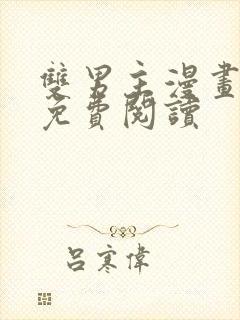 雙男主漫畫
免費閱讀
呂寒偉